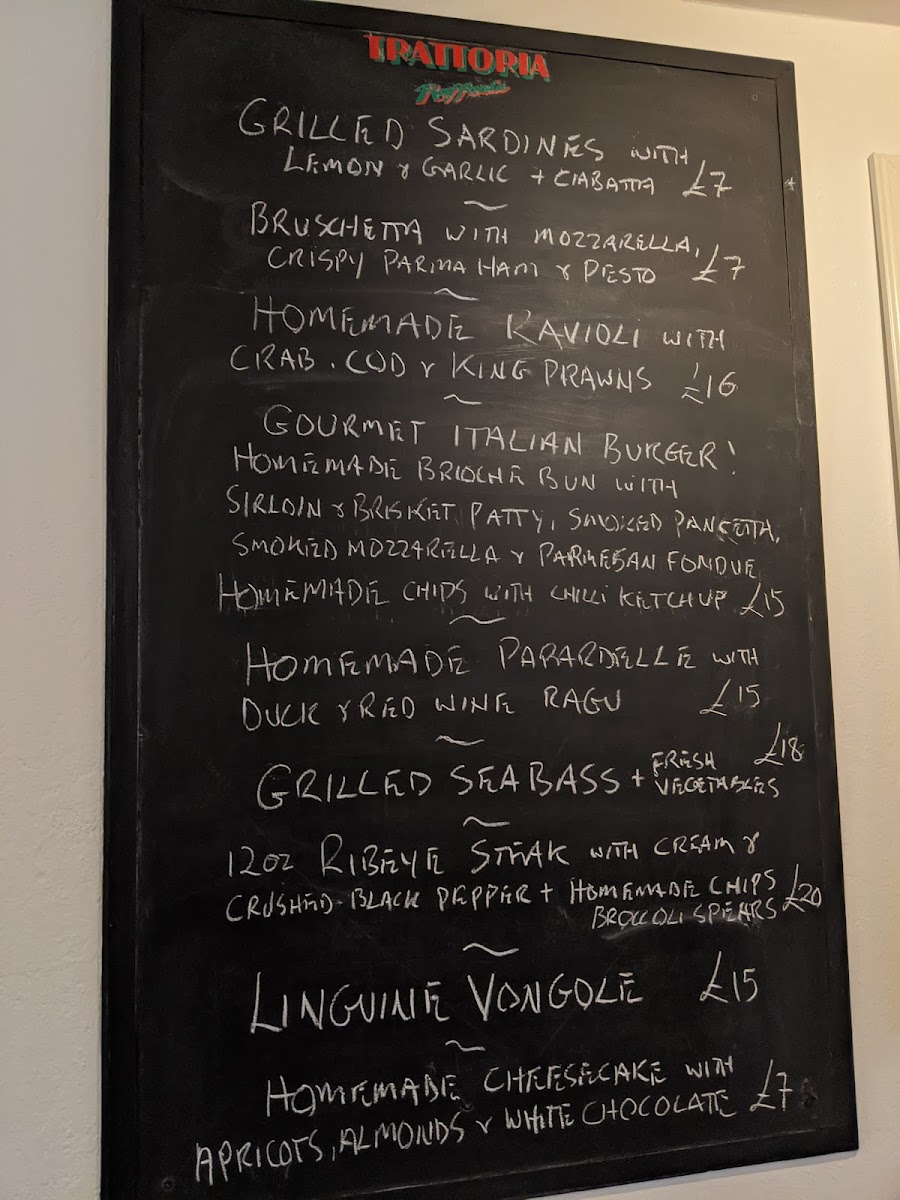 TRATTORIA
GRILLED SARDINES WITH
LEMON & GARLIC + CIABATTA £7
~
BRUSCHETTA WITH MOZZARELLA,
CRISPY PARMA HAM & PESTO £7
~
HOMEMADE RAVIOLI WITH
CRAB, COD & KING PRAWNS £16
~
GOURMET ITALIAN BURGER!
HOMEMADE BRIOCHE BUN WITH
SIRLOIN & BRISKET PATTY, SMOKED PANCETTA,
SMOKED MOZZARELLA & PARMESAN FONDUE
HOMEMADE CHIPS WITH CHILLI KETCHUP £15
~
HOMEMADE PAPARDELLE WITH
DUCK & RED WINE RAGU £15
~
GRILLED SEABASS + FRESH VEGETABLES £18
~
12OZ RIBEYE STEAK WITH CREAM &
CRUSHED BLACK PEPPER + HOMEMADE CHIPS £20
BROCCOLI SPEARS
~
LINGUINE VONGOLE £15
~
HOMEMADE CHEESECAKE WITH
APRICOTS, ALMONDS & WHITE CHOCOLATE £7